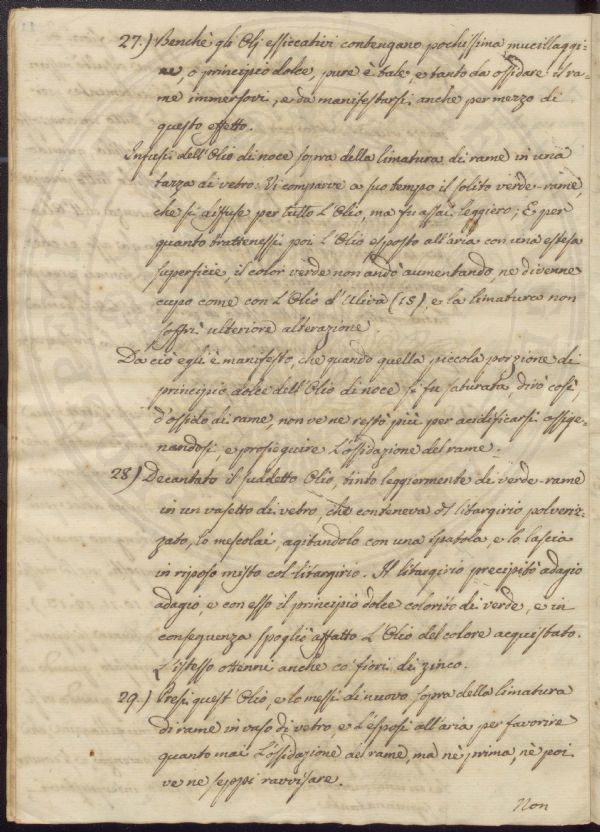 27.) Benchè gli Olj essiccativi contengano pochissima mucillaggi=
ne, o principio dolce, pure è tale, e tanto da ossidare il ra=
me immersovi, e da manifestarsi anche per mezzo di
questo effetto.
Infusi dell'Olio di noce sopra della limatura di rame in una
tazza di vetro: Vi comparve a suo tempo il solito verde-rame,
che si diffuse per tutto l'Olio, ma fu assai leggiero; E per
quanto trattenessi poi l'Olio esposto all'aria con una estesa
superficie, il color verde non andò aumentando, nè divenne
cupo come con l'Olio d'Uliva (15), e la limatura non
soffrì ulteriore alterazione.
Da ciò egli è manifesto, che quando quella piccola porzione di
principio dolce dell'Olio di noce si fu saturata, dirò così,
d'ossido di rame, non ve ne restò più per acidificarsi ossige=
nandosi, e proseguire l'ossidazione del rame.
28) Decantato il suddetto Olio, tinto leggiermente di verde-rame
in un vasetto di vetro, che conteneva del litargirio polveriz=
zato, lo mescolai, agitandolo con una spatola, e lo lasciai
in riposo misto col litargirio. Il litargirio precipitò adagio
adagio, e con esso il principio dolce colorito di verde, e in
conseguenza spogliò affatto l'Olio del colore acquistato.
L'istesso ottenni anche co' fiori di zinco.
29.) Presi quest'Olio, e lo messi di nuovo sopra della limatura
di rame in vaso di vetro, e l'esposi all'aria per favorire
quanto mai l'ossidazione del rame, ma nè prima, nè poi
ve ne seppi ravvisare.
Non